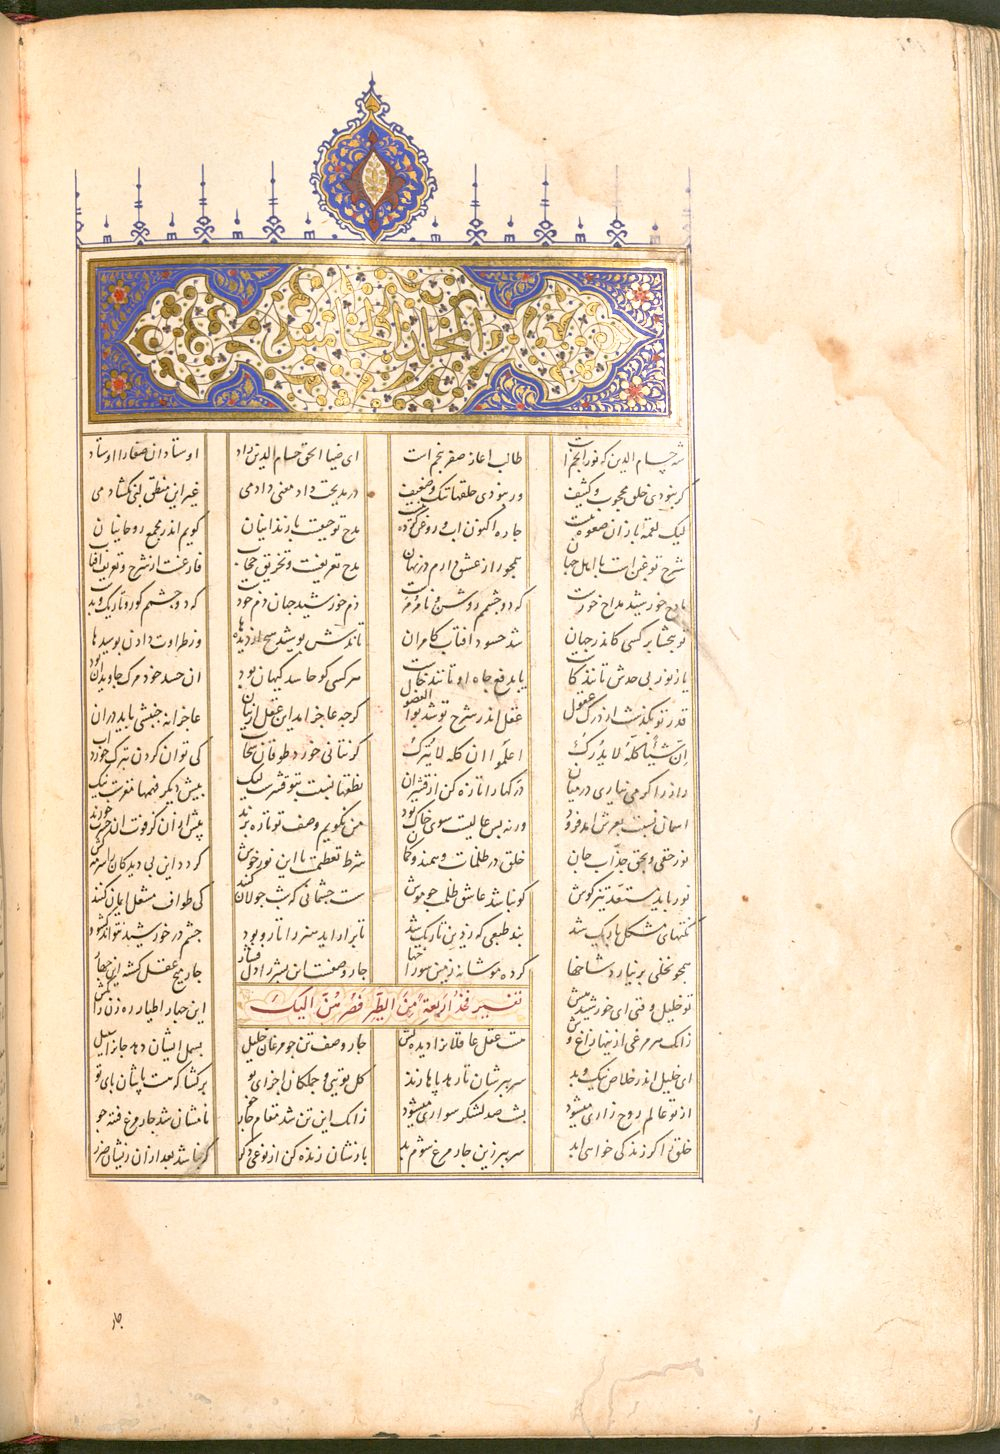 المجلد الخامس
شه حسام الدین که نور انجم است طالب آغاز سفر پنجم است ای ضیا الحق حسام الدین راد اوستادان صفا را اوستاد
گر نبودی خلق محجوب و کثیف ور نبودی حلقها تنگ و ضعیف در مدیحت داد معنی دادمی غیر این منطق لبی بگشادمی
لیک لقمه باز آن صعوه نیست چاره اکنون آب و روغن کردنیست مدح تو حیفست با زندانیان گویم اندر مجمع روحانیان
شرح تو غبن است با اهل جهان همچو راز عشق دارم در نهان مدح تعریفست و تخریق حجاب فارغست از شرح و تعریف آفتاب
مادح خورشید مداح خودست که دو چشمم روشن و نامرمدست ذم خورشید جهان ذم خودست که دو چشمم کور و تاریک و بدست
تو ببخشا بر کسی کاندر جهان شد حسود آفتاب کامران تاندش پوشید هیچ از دیدها وز طراوت دادن پوسیدها
یا ز نور بی حدش تانند کاست یا بدفع جاه او تانند خاست هر کسی کو حاسد کیهان بود آن حسد خود مرگ جاویدان بود
قدر تو بگذشت از درک عقول عقل اندر شرح تو شد بوالفضول گرچه عاجز آمد این عقل از بیان عاجزانه جنبشی باید در آن
ان شیئا کله لا یدرک اعلموا ان کله لا یترک گر نتانی خورد طوفان سحاب کی توان کردن بترک خورد آب
راز را گر می نیاری در میان درکها را تازه کن از قشر آن نطقها نسبت بتو قشرست لیک پیش دیگر فهمها مغزست نیک
آسمان نسبت بعرش آمد فرود ورنه بس عالیست سوی خاک تود من بگویم وصف تو تا ره برند پیش از آن کز فوت آن حسرت خورند
نور حقی و بحق جذاب جان خلق در ظلمات وهمند و گمان شرط تعظیمست تا این نور خوش گردد این بی دیدگان را سرمه کش
نور یابد مستعد تیزگوش کو نباشد عاشق ظلمت چو موش سست چشمانی که شب جولان کنند کی طواف مشعل ایمان کنند
نکتهای مشکل باریک شد بند طبعی که ز دین تاریک شد تا برآراید هنر را تار و پود چشم در خورشید نتواند گشود
همچو نخلی برنیارد شاخها کرده موشانه زمین سوراخها چار وصفست این بشر را دل فشار چارمیخ عقل گشته این چهار
تفسیر فخذ اربعة من الطیر فصرهن الیک
تو خلیل وقتی ای خورشیدهش این چهار اطیار ره زن را بکش
زانک هر مرغی ازینها زاغ وش هست عقل عاقلان را دیده کش چار وصف تن چو مرغان خلیل بسمل ایشان دهد جان را سبیل
ای خلیل اندر خلاص نیک و بد سر ببرشان تا رهد پاها ز سد کل تویی و جملگان اجزای تو برگشا که هست پاشان پای تو
از تو عالم روح زاری میشود پشت صد لشکر سواری میشود زانک این تن شد مقام چار خو نامشان شد چار مرغ فتنه جو
خلق را گر زندگی خواهی ابد سر ببر زین چار مرغ شوم بد بازشان زنده کن از نوعی دگر که نباشد بعد از آن زیشان ضرر